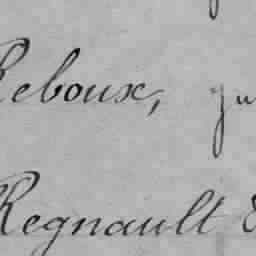 Reboux,
Regnault